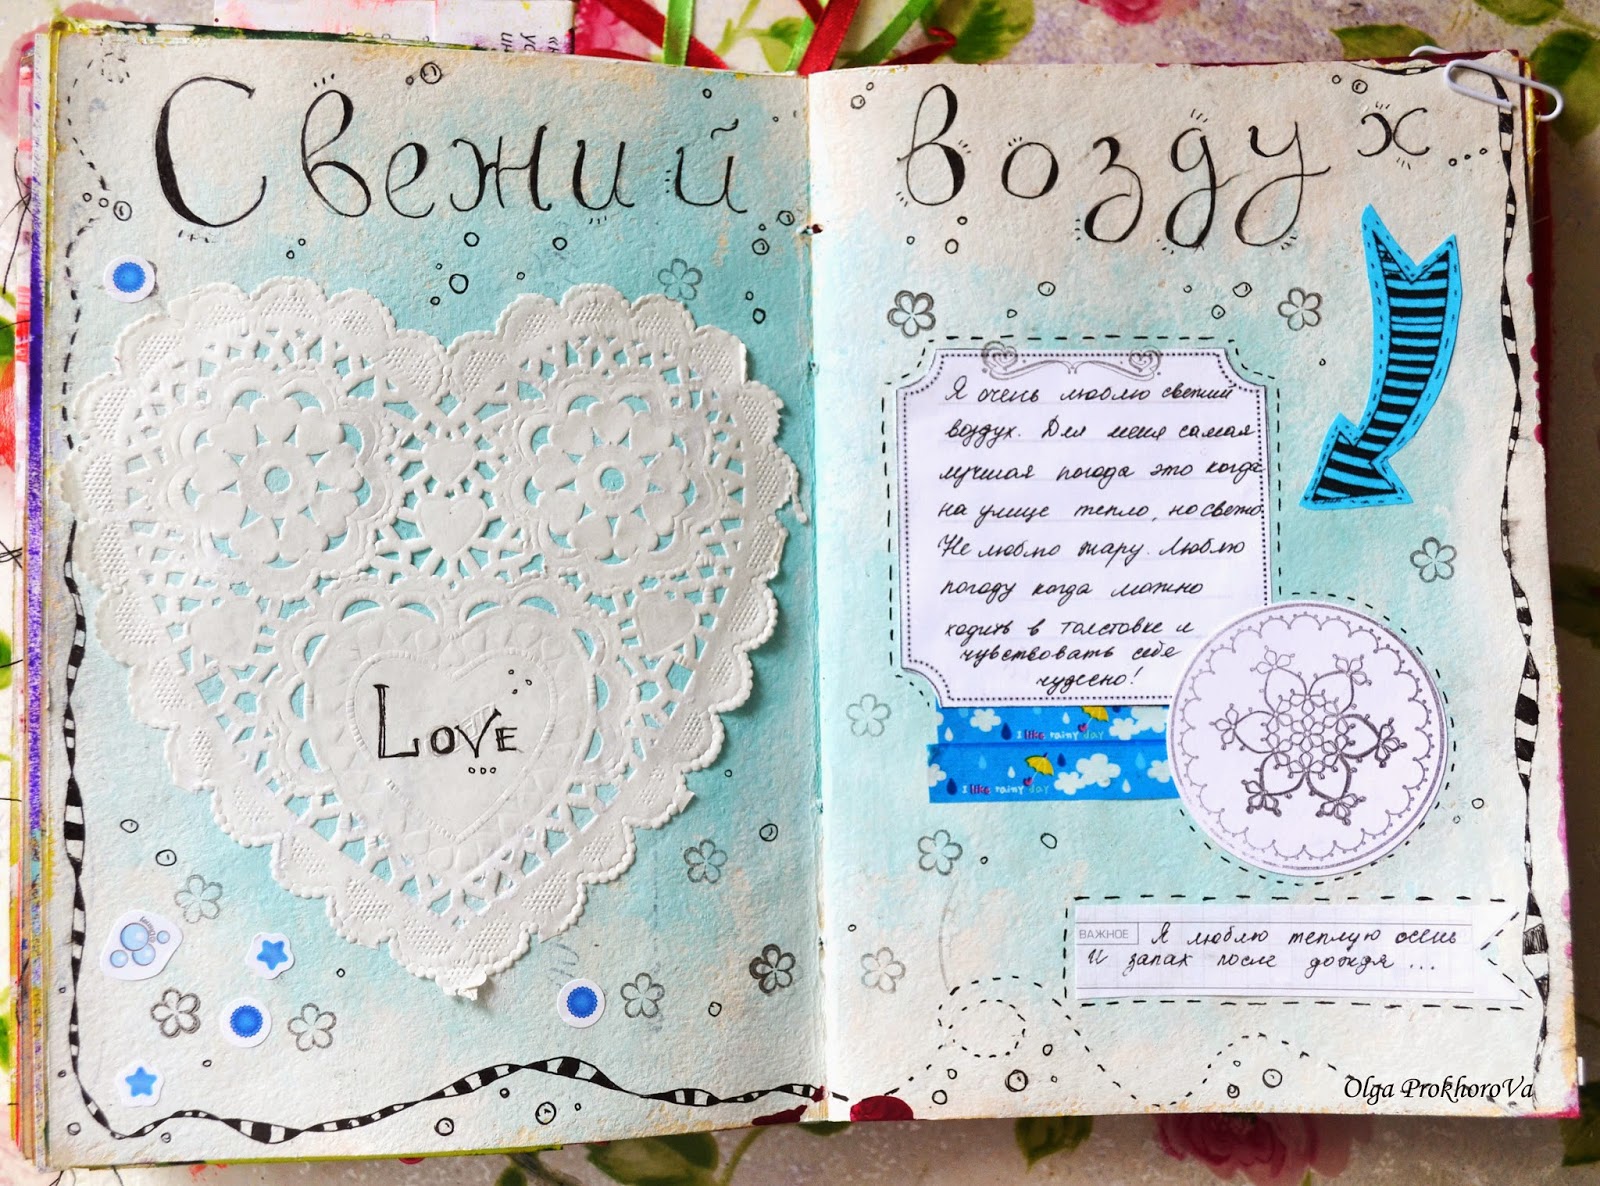 Свежий воздух...
LOVE
Я очень люблю свежий
воздух. Для меня самая
лучшая погода это когда
на улице тепло, но свежо.
Не люблю жару. Люблю
погоду когда можно
ходить в толстовке и
чувствовать себя
чудесно!
I like rainy day
I like rainy day
I like rainy day
ВАЖНОЕ
Я люблю теплую осень
и запах после дождя ...
Olga ProkhoroVa